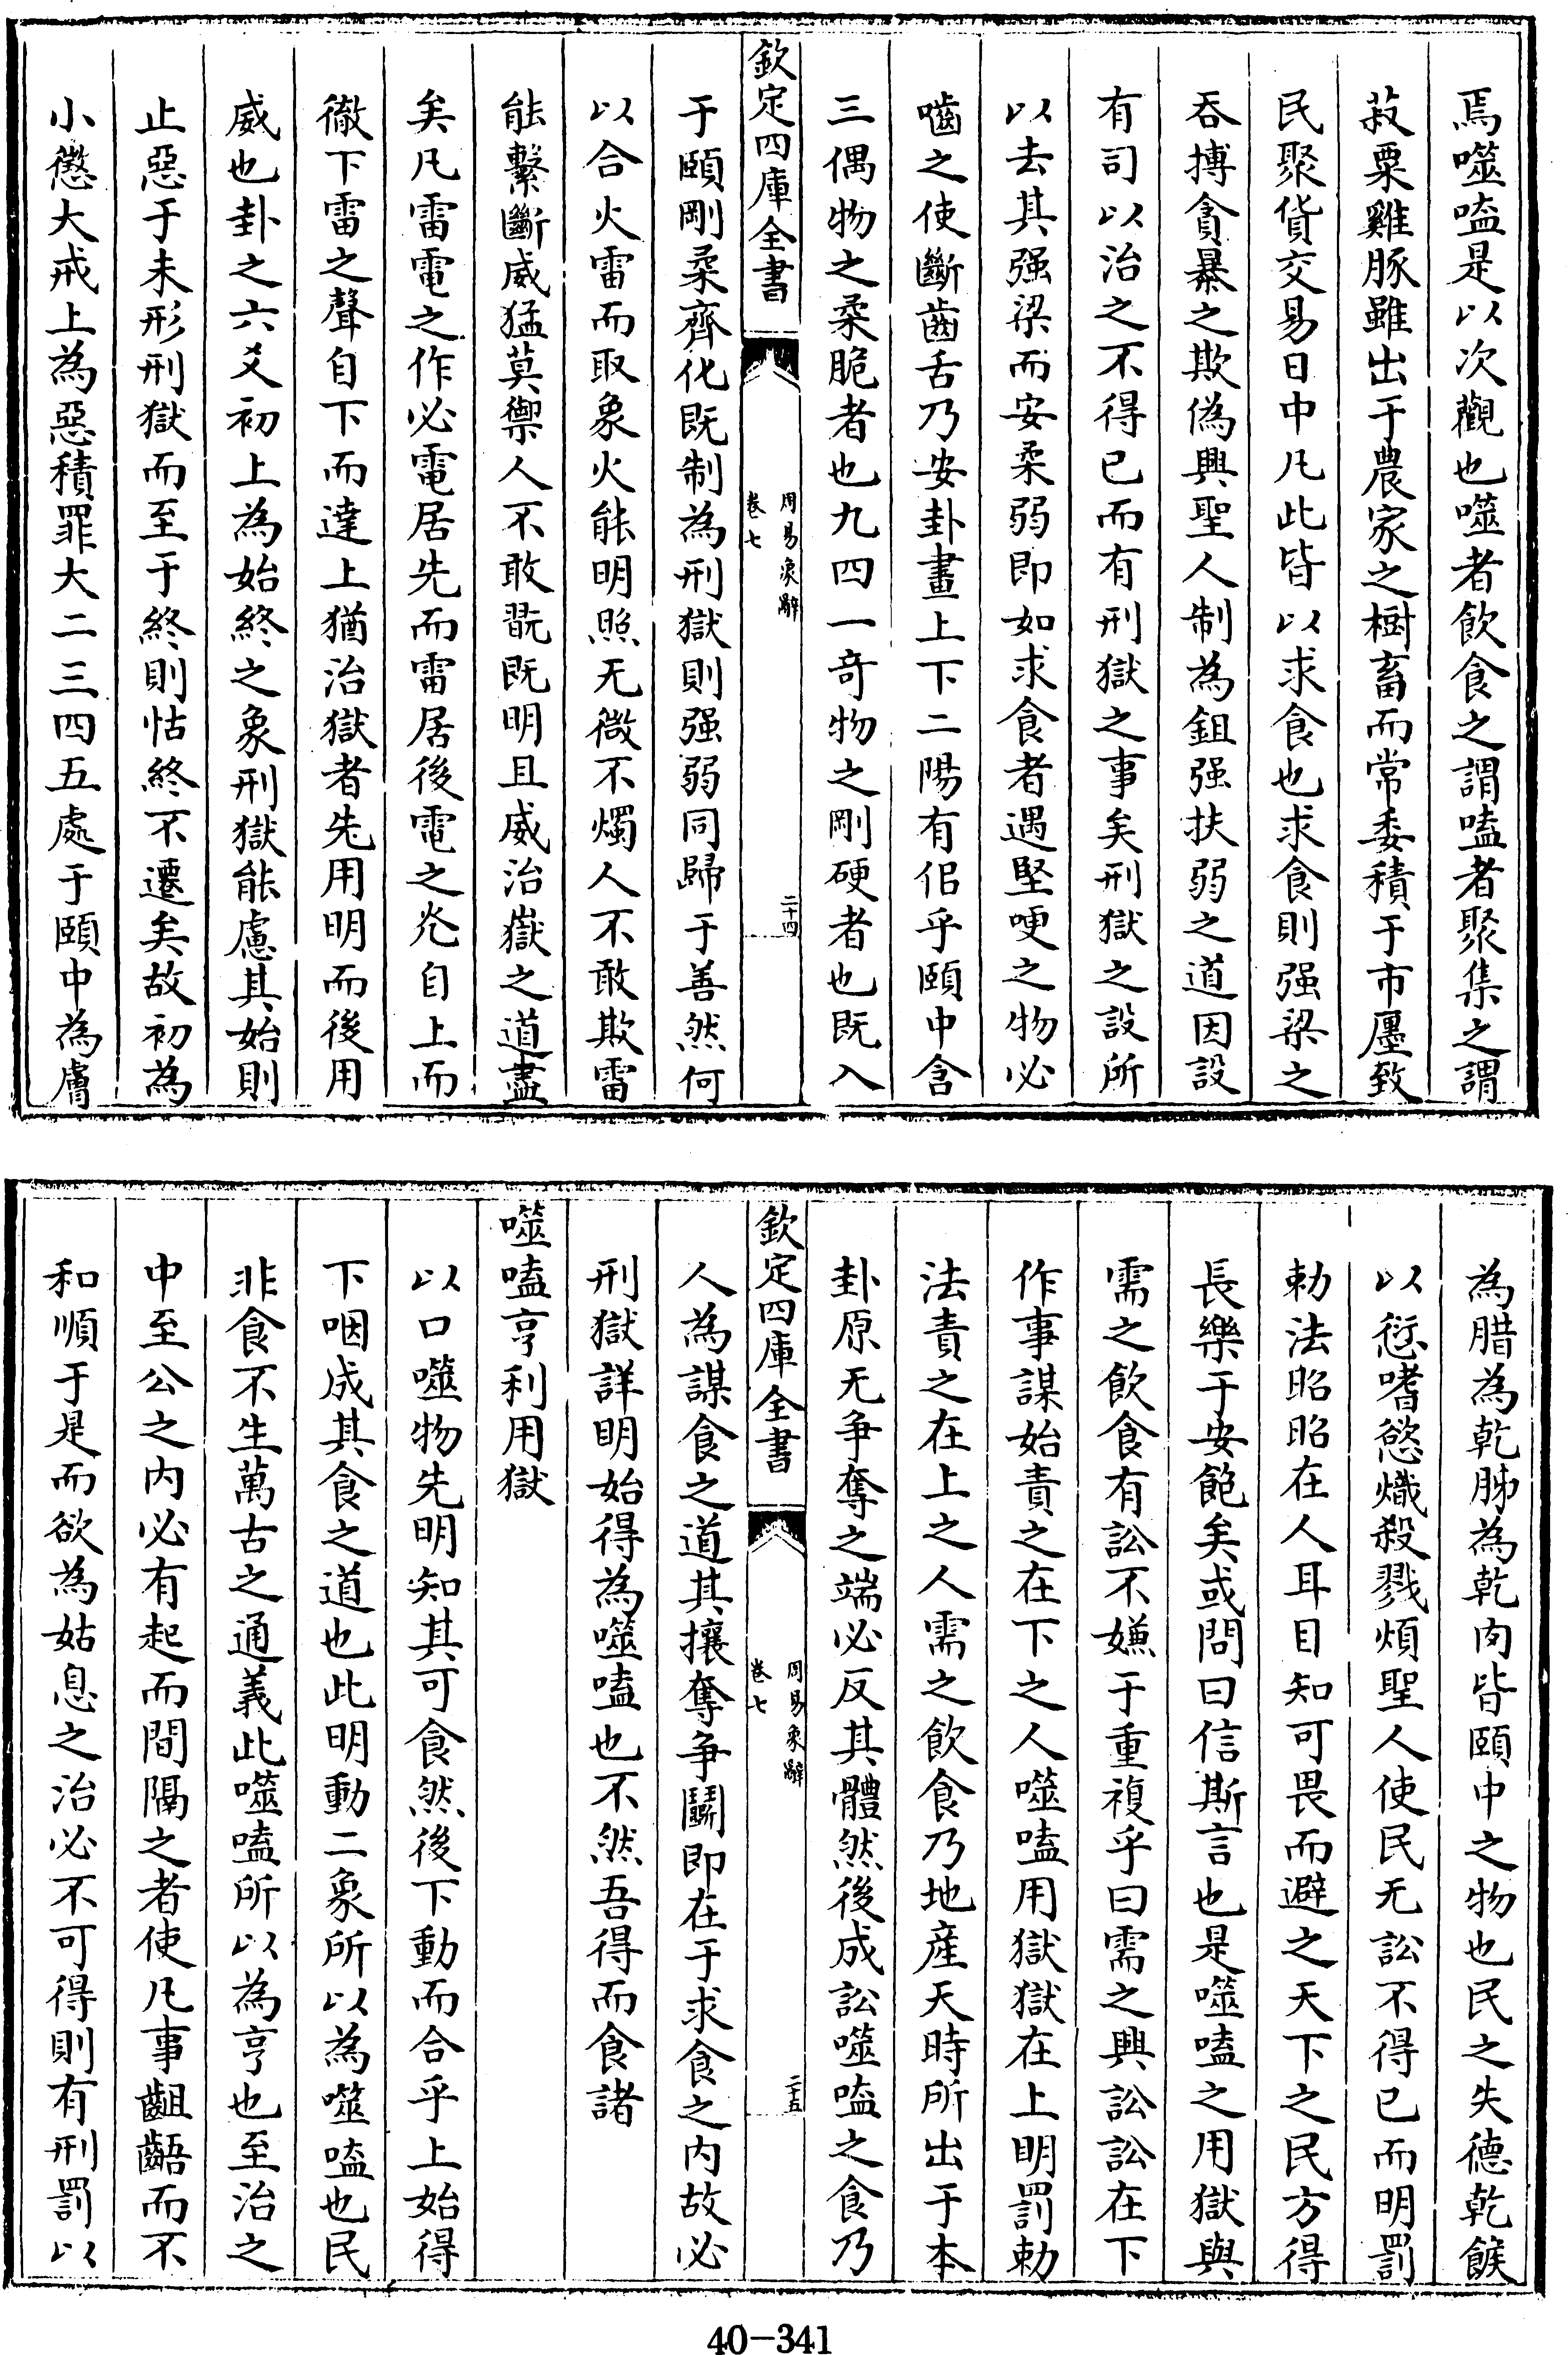 焉噬嗑是以次觀也噬者飲食之謂嗑者聚集之謂
菽粟雞豚雖出于農家之樹畜而常委積于市廛致
民聚貨交易日中凡此皆以求食也求食則强梁之
吞搏貪暴之欺偽興聖人制為鉏强扶弱之道因設
有司以治之不得已而有刑獄之事矣刑獄之設所
以去其强梁而安柔弱即如求食者遇堅哽之物必
嚙之使斷齒舌乃安卦畫上下二陽有侶乎頤中含
三偶物之柔脆者也九四一奇物之剛硬者也既入
欽定四庫全書
周易象辭
卷七
二十四
于頤剛柔齊化既制為刑獄則强弱同歸于善然何
以合火雷而取象火能明照无微不燭人不敢欺雷
能繫斷威猛莫禦人不敢翫既明且威治嶽之道盡
矣凡雷電之作必電居先而雷居後電之光自上而
徹下雷之聲自下而達上猶治獄者先用明而後用
威也卦之六爻初上為始終之象刑獄能慮其始則
止惡于未形刑獄而至于終則怙終不遷矣故初為
小懲大戒上為惡積罪大二三四五處于頤中為膚
為腊為乾胏為乾肉皆頤中之物也民之失德乾餱
以愆嗜慾熾殺戮煩聖人使民无訟不得已而明罰
勅法昭昭在人耳目知可畏而避之天下之民方得
長樂于安飽矣或問曰信斯言也是噬嗑之用獄與
需之飲食有訟不嫌于重複乎曰需之興訟訟在下
作事謀始責之在下之人噬嗑用獄獄在上明罰勅
法責之在上之人需之飲食乃地産天時所出于本
卦原无争奪之端必反其體然後成訟噬嗑之食乃
欽定四庫全書
周易象辭
卷七
二十五
人為謀食之道其攘奪争鬭即在于求食之内故必
刑獄詳明始得為噬嗑也不然吾得而食諸
噬嗑亨利用獄
以口噬物先明知其可食然後下動而合乎上始得
下咽成其食之道也此明動二象所以為噬嗑也民
非食不生萬古之通義此噬嗑所以為亨也至治之
中至公之内必有起而間隔之者使凡事齟齬而不
和順于是而欲為姑息之治必不可得則有刑罰以
40-341